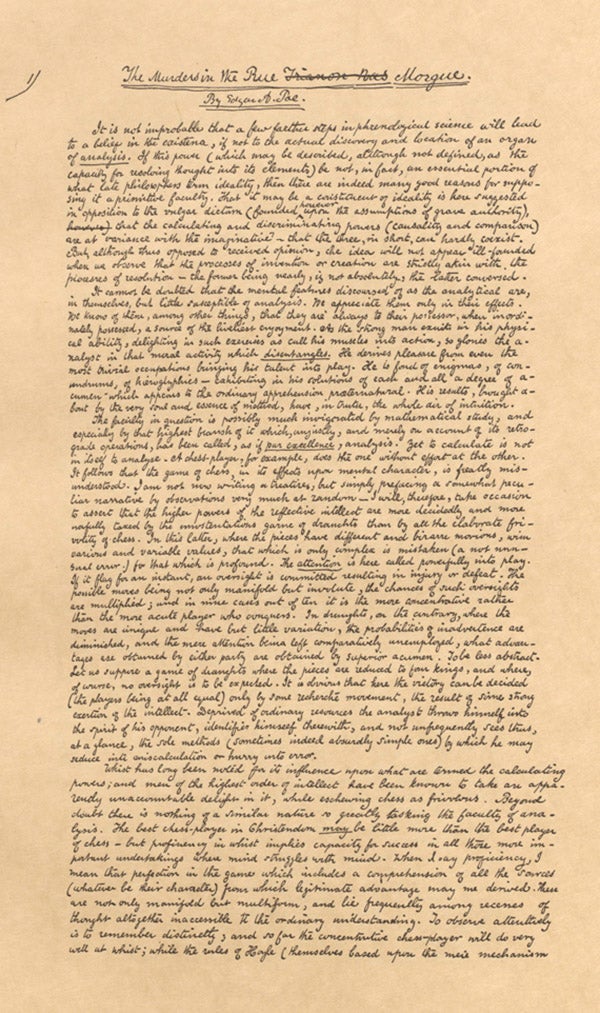 1/
The Murders in the Rue Trianon Bas Morgue.
By Edgar A. Poe.
It is not improbable that a few farther steps in phrenological science will lead
to a belief in the existence, if not to the actual discovery and location of an organ
of analysis. If this power (which may be described, although not defined, as the
capacity for resolving thought into its elements) be not, in fact, an essential portion of
what late philosophers term ideality, then there are indeed many good reasons for suppo-
sing it a primitive faculty. That it may be a constituent of ideality is here suggested
in opposition to the vulgar dictum (founded, however, upon the assumptions of grave authority),
however) that the calculating and discriminating powers (causality and comparison)
are at variance with the imaginative — that the three, in short, can hardly coexist.
But, although thus opposed to received opinion, the idea will not appear ill-founded
when we observe that the processes of invention or creation are strictly akin with the
processes of resolution — the former being nearly, if not absolutely, the latter conversed.
It cannot be doubted that the mental features discoursed of as the analytical are,
in themselves, but little susceptible of analysis. We appreciate them only in their effects.
We know of them, among other things, that they are always to their possessor, when inordi-
nately possessed, a source of the liveliest enjoyment. As the strong man exults in his physi-
cal ability, delighting in such exercises as call his muscles into action, so glories the a-
nalyst in that moral activity which disentangles. He derives pleasure from even the
most trivial occupations bringing his talent into play. He is fond of enigmas, of con-
undrums, of hieroglyphics — exhibiting in his solutions of each and all a degree of a-
cumen which appears to the ordinary apprehension præternatural. His results, brought a-
bout by the very soul and essence of method, have, in truth, the whole air of intuition.
The faculty in question is possibly much invigorated by mathematical study, and
especially by that highest branch of it which, unjustly, and merely on account of its retro-
grade operations, has been called, as if par excellence, analysis. Yet to calculate is not
in itself to analyse. A chess-player, for example, does the one without effort at the other.
It follows that the game of chess, in its effects upon mental character, is greatly mis-
understood. I am not now writing a treatise, but simply prefacing a somewhat pecu-
liar narrative by observations very much at random — I will, therefore, take occasion
to assert that the higher powers of the reflective intellect are more decidedly and more
usefully taxed by the unostentatious game of draughts than by all the elaborate fri-
volity of chess. In this latter, where the pieces have different and bizarre motions, with
various and variable values, that which is only complex is mistaken (a not unu-
sual error) for that which is profound. The attention is here called powerfully into play.
If it flag for an instant, an oversight is committed resulting in injury or defeat. The
possible moves being not only manifold but involute, the chances of such oversights
are multiplied; and in nine cases out of ten it is the more concentrative rather
than the more acute player who conquers. In draughts, on the contrary, where the
moves are unique and have but little variation, the probabilities of inadvertence are
diminished, and the mere attention being left comparatively unemployed, what advan-
tages are obtained by either party are obtained by superior acumen. To be less abstract.
Let us suppose a game of draughts where the pieces are reduced to four kings, and where,
of course, no oversight is to be expected. It is obvious that here the victory can be decided
(the players being at all equal) only by some recherché movement, the result of some strong
exertion of the intellect. Deprived of ordinary resources the analyst throws himself into
the spirit of his opponent, identifies himself therewith, and not unfrequently sees thus,
at a glance, the sole methods (sometimes indeed absurdly simple ones) by which he may
seduce into miscalculation or hurry into error.
Whist has long been noted for its influence upon what are termed the calculating
powers; and men of the highest order of intellect have been known to take an appa-
rently unaccountable delight in it, while eschewing chess as frivolous. Beyond
doubt there is nothing of a similar nature so greatly tasking the faculty of ana-
lysis. The best chess-player in Christendom may be little more than the best player
of chess — but proficiency in whist implies capacity for success in all those more im-
portant undertakings where mind struggles with mind. When I say proficiency, I
mean that perfection in the game which includes a comprehension of all the sources
(whatever be their character) from which legitimate advantage may be derived. These
are not only manifold but multiform, and lie frequently among recesses of
thought altogether inaccessible to the ordinary understanding. To observe attentively
is to remember distinctly; and so far the concentrative chess-player will do very
well at whist; while the rules of Hoyle (themselves based upon the mere mechanism